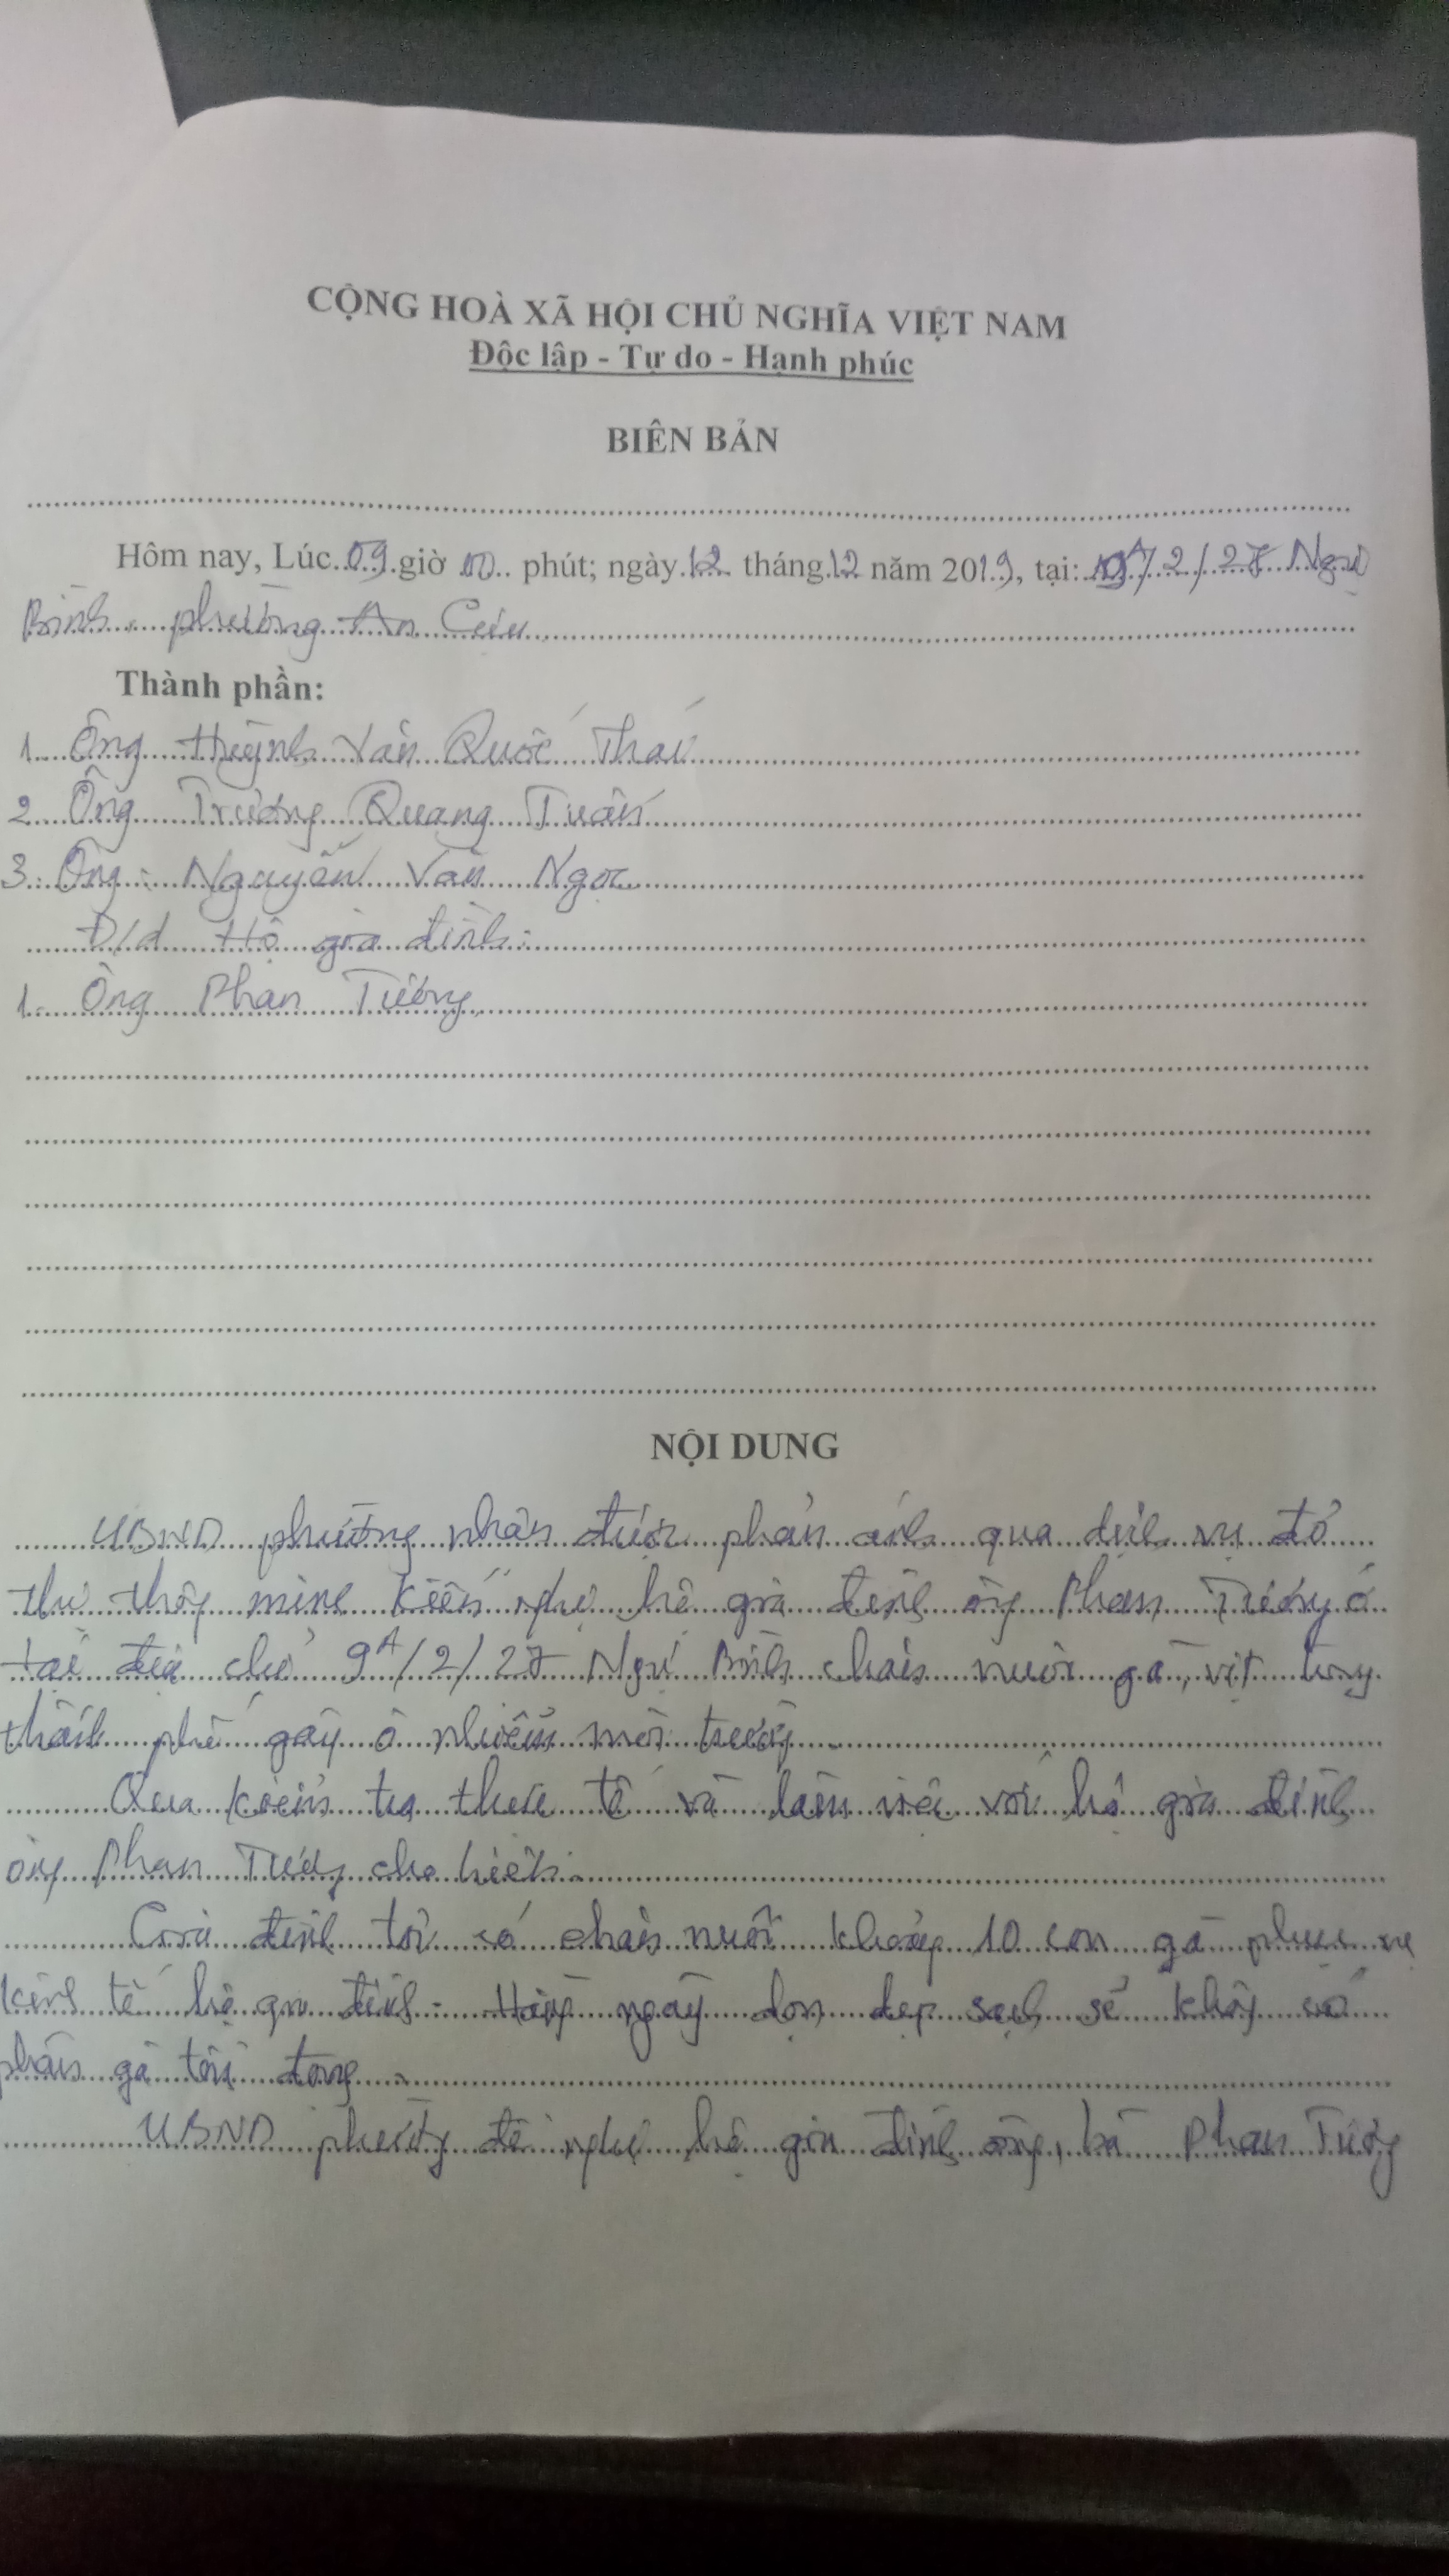 CỘNG HOÀ XÃ HỘI CHỦ NGHĨA VIỆT NAM
Độc lập - Tự do - Hạnh phúc
BIÊN BẢN
Hôm nay, Lúc 09 giờ 00 phút; ngày 12 tháng 12 năm 2019, tại: 9A/2/27 Ngự
Bình, phường An Cựu
Thành phần:
1. Ông Huỳnh Văn Quốc Thái
2. Ông Trương Quang Tuấn
3. Ông: Nguyễn Văn Ngọc
Đ/d Hộ gia đình:
1. Ông Phan Tường
NỘI DUNG
UBND phường nhận được phản ánh qua dịch vụ đô
thị thông minh kiến nghị hộ gia đình ông Phan Tường ở
tại địa chỉ 9A/2/27 Ngự Bình chăn nuôi gà, vịt trong
thành phố gây ô nhiễm môi trường.
Qua kiểm tra thực tế và làm việc với hộ gia đình
ông Phan Tường cho biết:
Gia đình tôi có chăn nuôi khoảng 10 con gà phục vụ
kinh tế hộ gia đình. Hàng ngày dọn dẹp sạch sẽ không có
phân gà tồn đọng.
UBND phường đề nghị hộ gia đình ông, bà Phan Tường